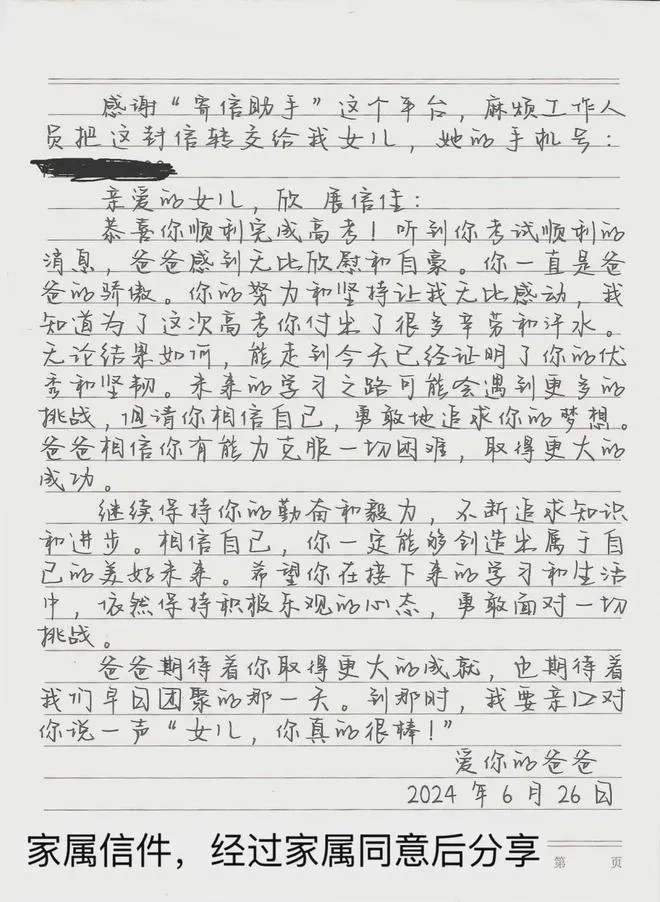 感谢“寄信助手”这个平台，麻烦工作人
员把这封信转交给我女儿，她的手机号：
亲爱的女儿，欣 展信佳：
恭喜你顺利完成高考！听到你考试顺利的
消息，爸爸感到无比欣慰和自豪。你一直是爸
爸的骄傲。你的努力和坚持让我无比感动，我
知道为了这次高考你付出了很多辛劳和汗水。
无论结果如何，能走到今天已经证明了你的优
秀和坚韧。未来的学习之路可能会遇到更多的
挑战，但请你相信自己，勇敢地追求你的梦想。
爸爸相信你有能力克服一切困难，取得更大的
成功。
继续保持你的勤奋和毅力，不断追求知识
和进步。相信自己，你一定能够创造出属于自
己的美好未来。希望你在接下来的学习和生活
中，依然保持积极乐观的心态，勇敢面对一切
挑战。
爸爸期待着你取得更大的成就，也期待着
我们早日团聚的那一天。到那时，我要亲口对
你说一声“女儿，你真的很棒！”
爱你的爸爸
2024 年 6 月 26 日
家属信件，经过家属同意后分享
第 页